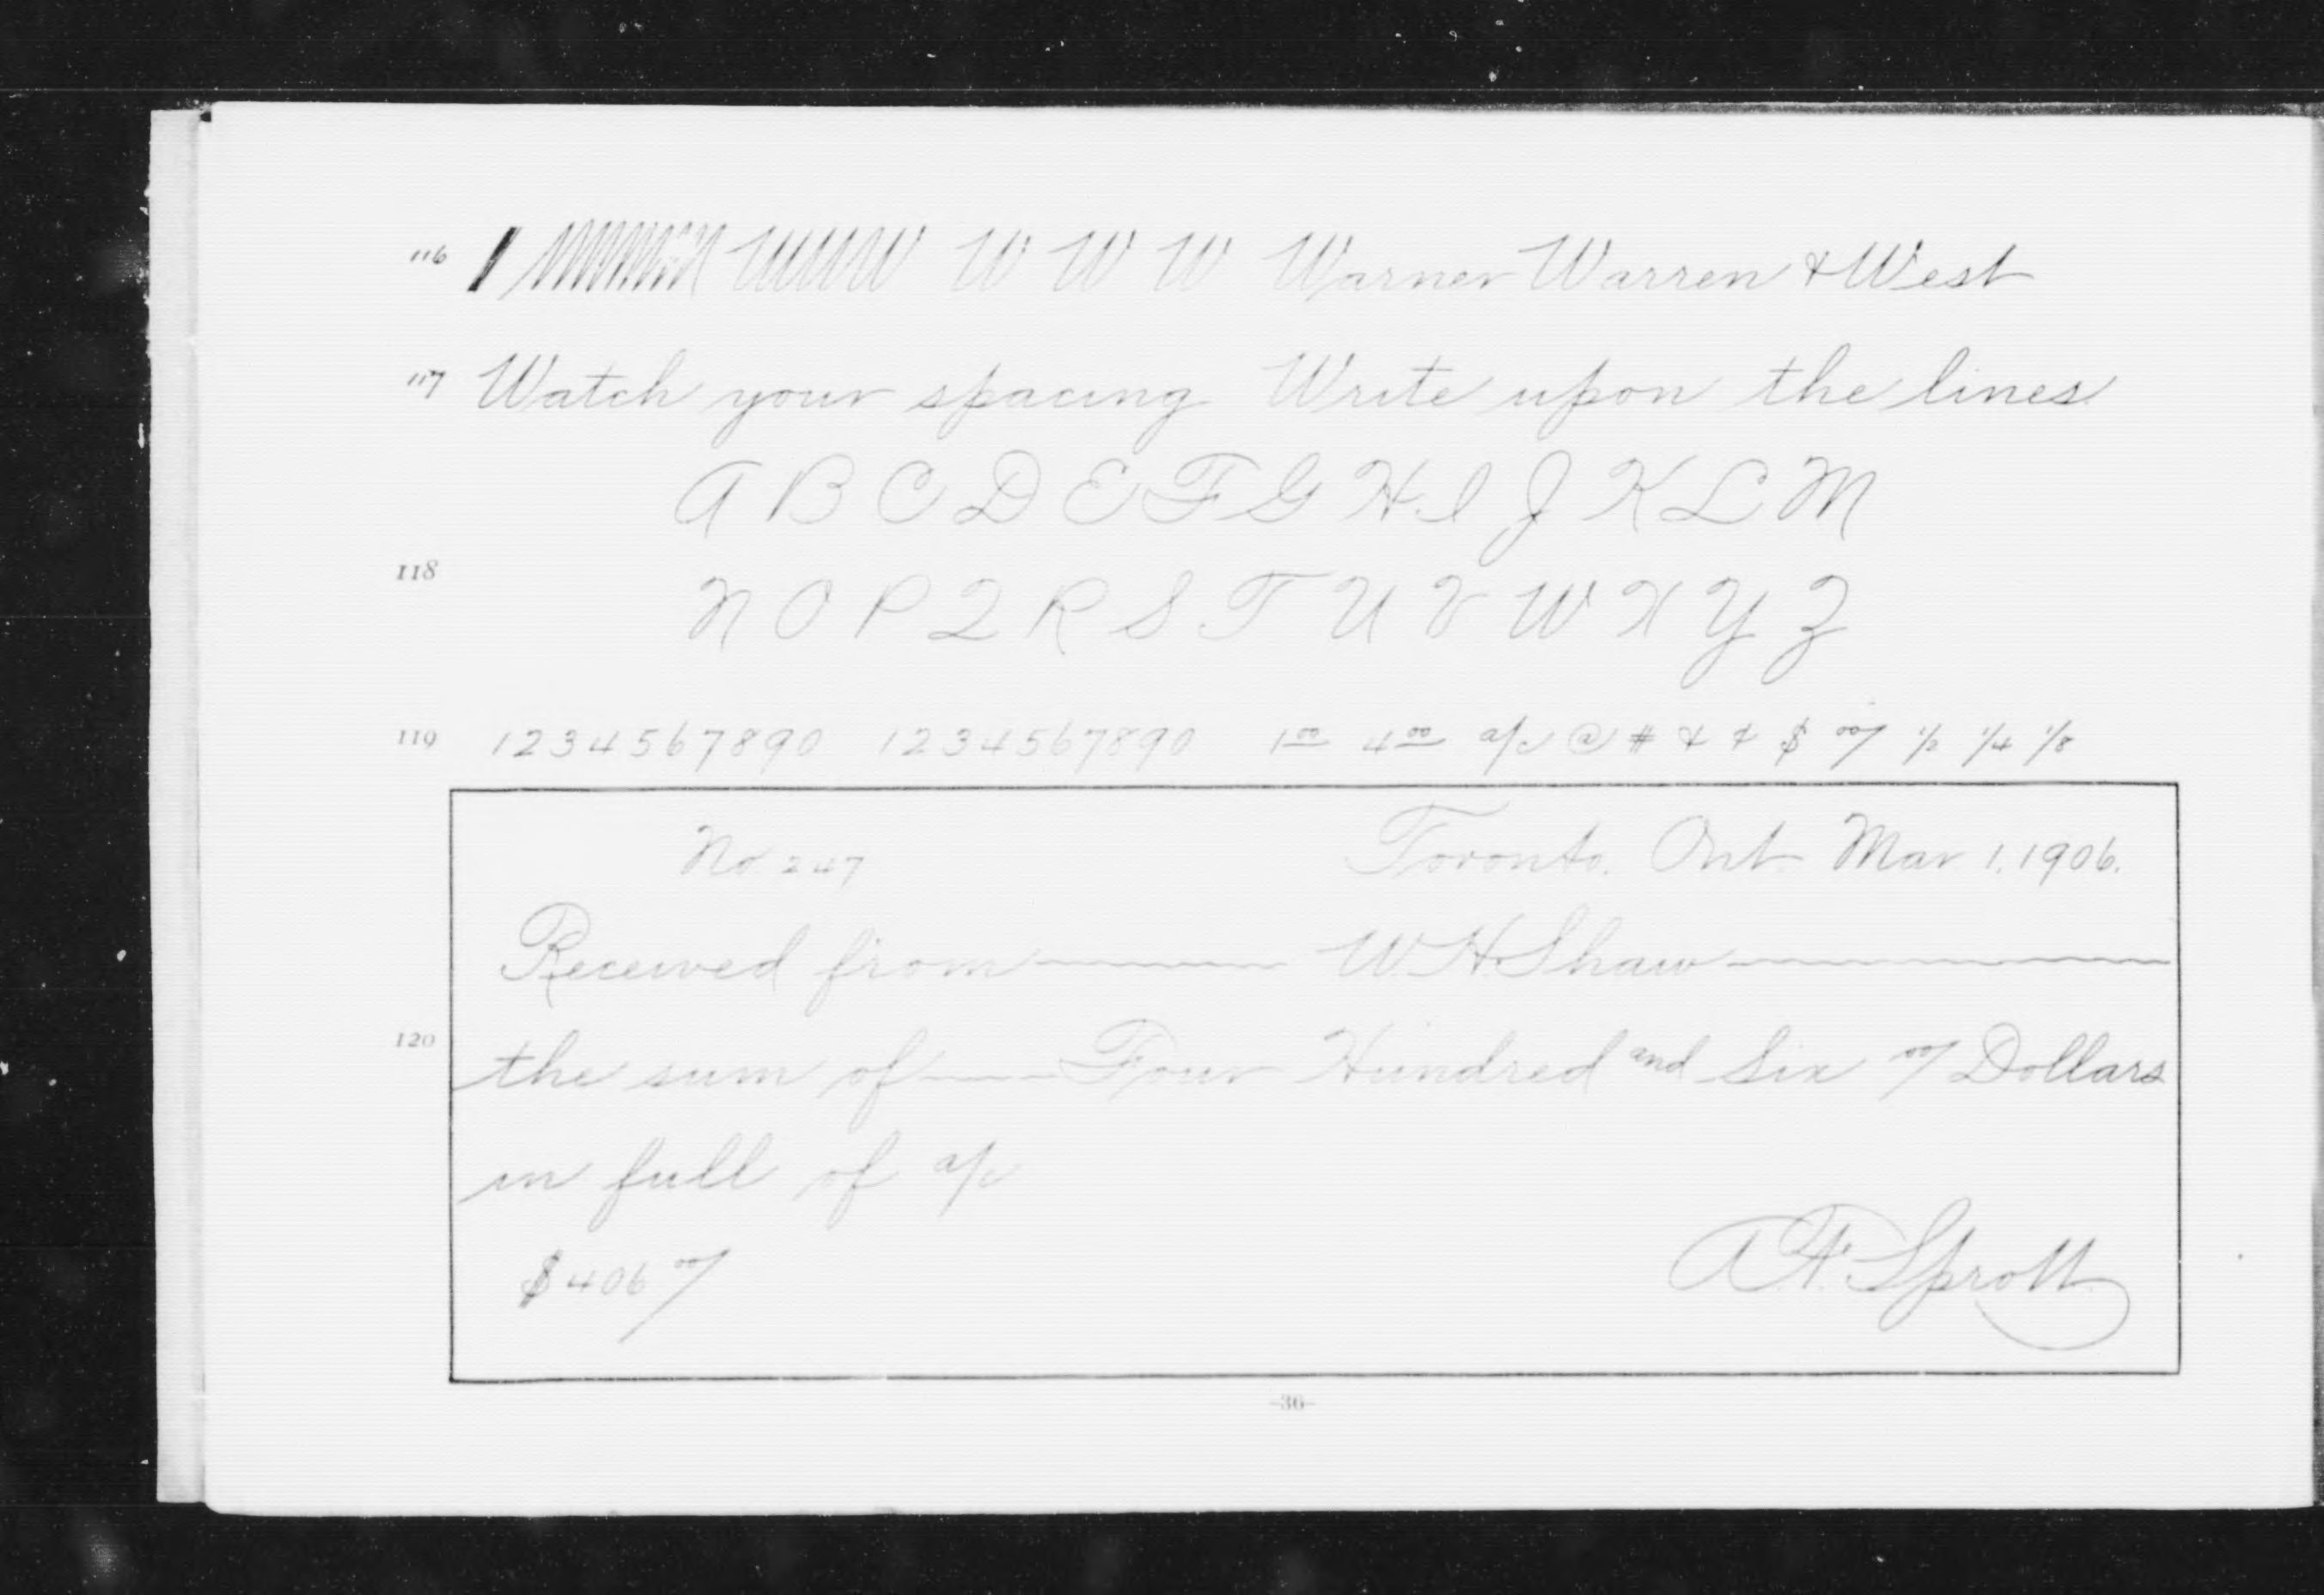 116 W W W Warner Warren & West
117 Watch your spacing Write upon the lines
A B C D E F G H I J K L M
118
N O P Q R S T U V W X Y Z
119 1234567890 1234567890 1 00 4 00 a/c @ # & & $ 00/ 1/2 1/4 1/8
No 247 Toronto, Ont. Mar 1, 1906.
Received from W. H. Shaw
120
the sum of Four Hundred and Six 00/ Dollars
in full of a/c
$406 00/ A. F. Sprott
-36-